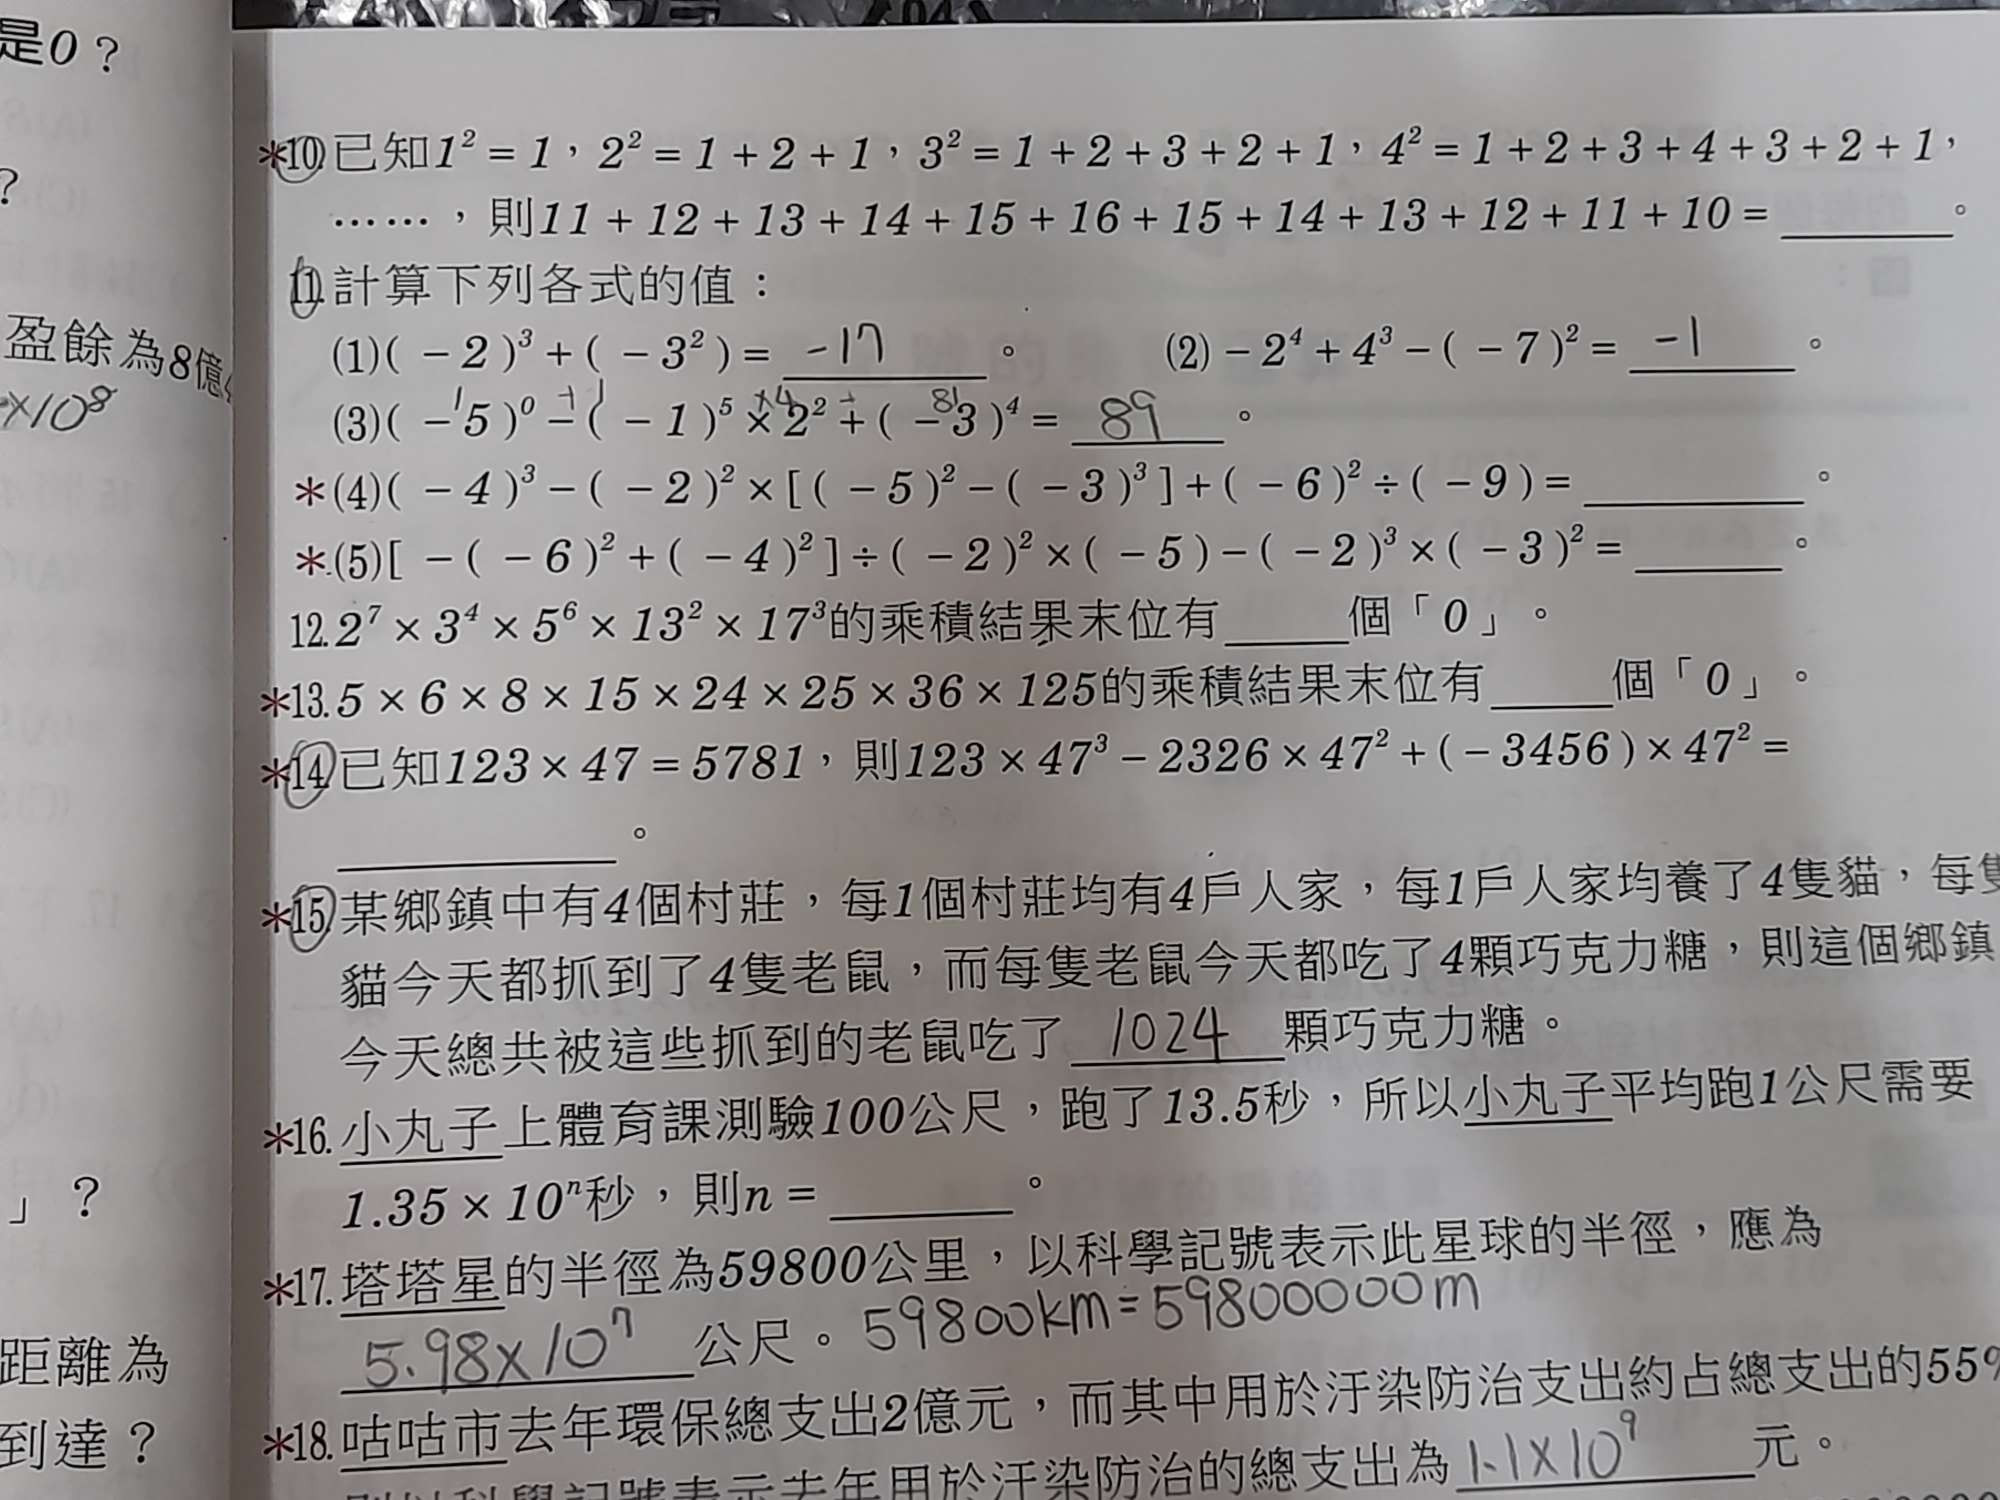 是0？
？
盈餘為8億
×10⁸
」？
距離為
到達？
*10.已知1²=1，2²=1+2+1，3²=1+2+3+2+1，4²=1+2+3+4+3+2+1，
……，則11+12+13+14+15+16+15+14+13+12+11+10=______。
11.計算下列各式的值：
(1)(-2)³+(-3²)= -17 。 (2)-2⁴+4³-(-7)²= -1 。
(3)(-5)⁰-(-1)⁵×2²+(-3)⁴= 89 。
*(4)(-4)³-(-2)²×[(-5)²-(-3)³]+(-6)²÷(-9)=______。
*(5)[-(-6)²+(-4)²]÷(-2)²×(-5)-(-2)³×(-3)²=______。
12.2⁷×3⁴×5⁶×13²×17³的乘積結果末位有____個「0」。
*13.5×6×8×15×24×25×36×125的乘積結果末位有____個「0」。
*14.已知123×47=5781，則123×47³-2326×47²+(-3456)×47²=
______。
*15.某鄉鎮中有4個村莊，每1個村莊均有4戶人家，每1戶人家均養了4隻貓，每隻
貓今天都抓到了4隻老鼠，而每隻老鼠今天都吃了4顆巧克力糖，則這個鄉鎮
今天總共被這些抓到的老鼠吃了 1024 顆巧克力糖。
*16.小丸子上體育課測驗100公尺，跑了13.5秒，所以小丸子平均跑1公尺需要
1.35×10ⁿ秒，則n=______。
*17.塔塔星的半徑為59800公里，以科學記號表示此星球的半徑，應為
5.98×10⁷ 公尺。59800km=59800000m
*18.咕咕市去年環保總支出2億元，而其中用於汙染防治支出約占總支出的55%
則以科學記號表示去年用於汙染防治的總支出為 1.1×10⁹ 元。